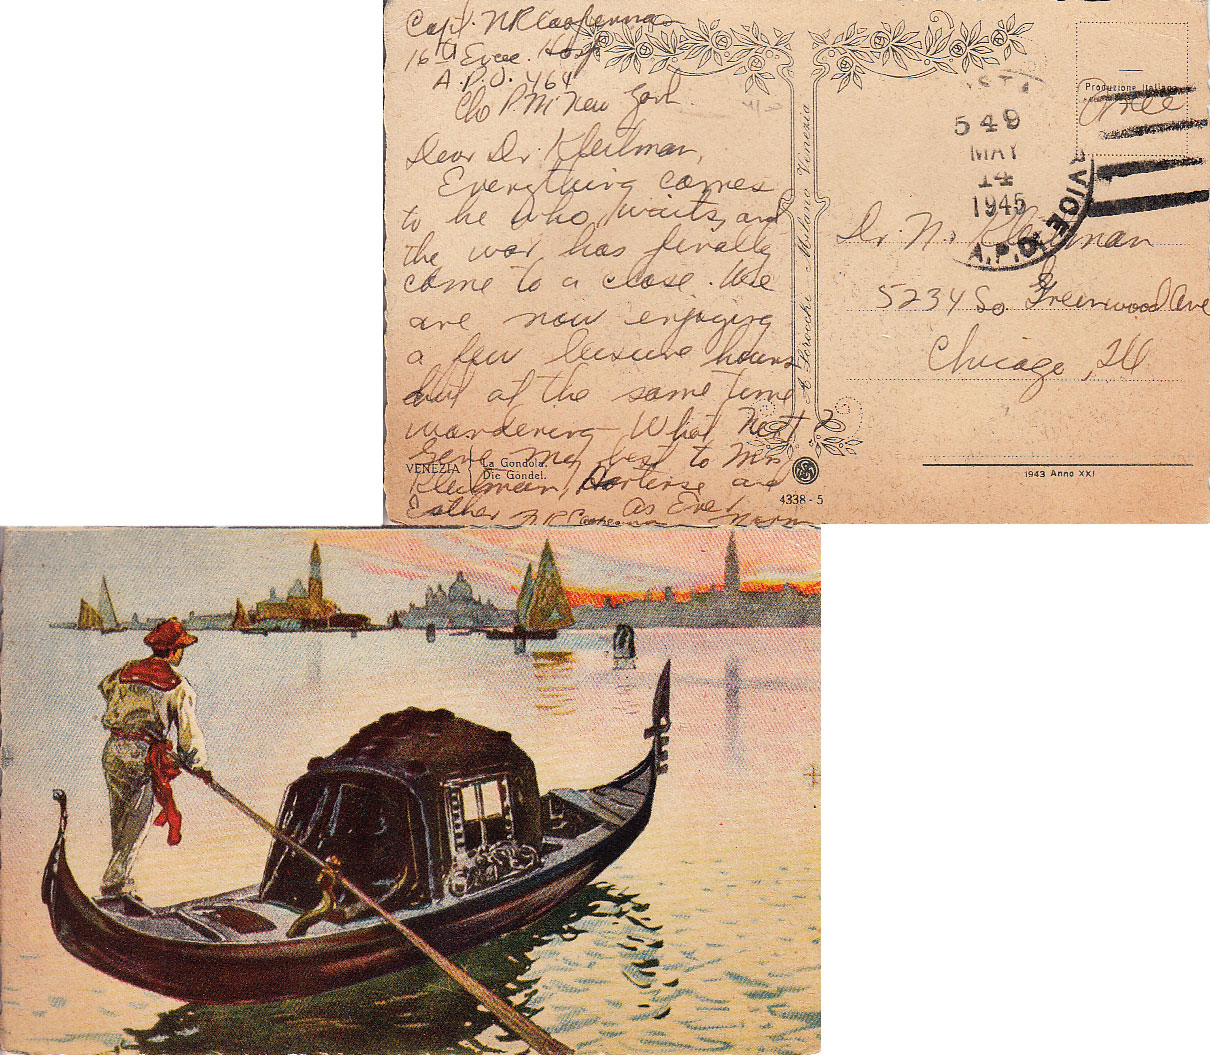 Capt. N R Cooperman
16th Evac. Hosp
A.P.O. 464
C/o P.M. New York
Dear Dr. Kleitman,
Everything comes
to he who waits, and
the war has finally
come to a close. We
are now enjoying
a few leisure hours
but at the same time
wondering What Next?
Give my best to Mrs
Kleitman, Hortense and
Esther As Ever
N R Cooperman Norm
VENEZIA
La Gondola.
Die Gondel.
A. Scrocchi - Milano Venezia
4338 - 5
Produzione Italiana
Free
549
MAY
14
1945
A.P.O.
Dr. N. Kleitman
5234 So. Greenwood Ave
Chicago, Ill
1943 Anno XXI